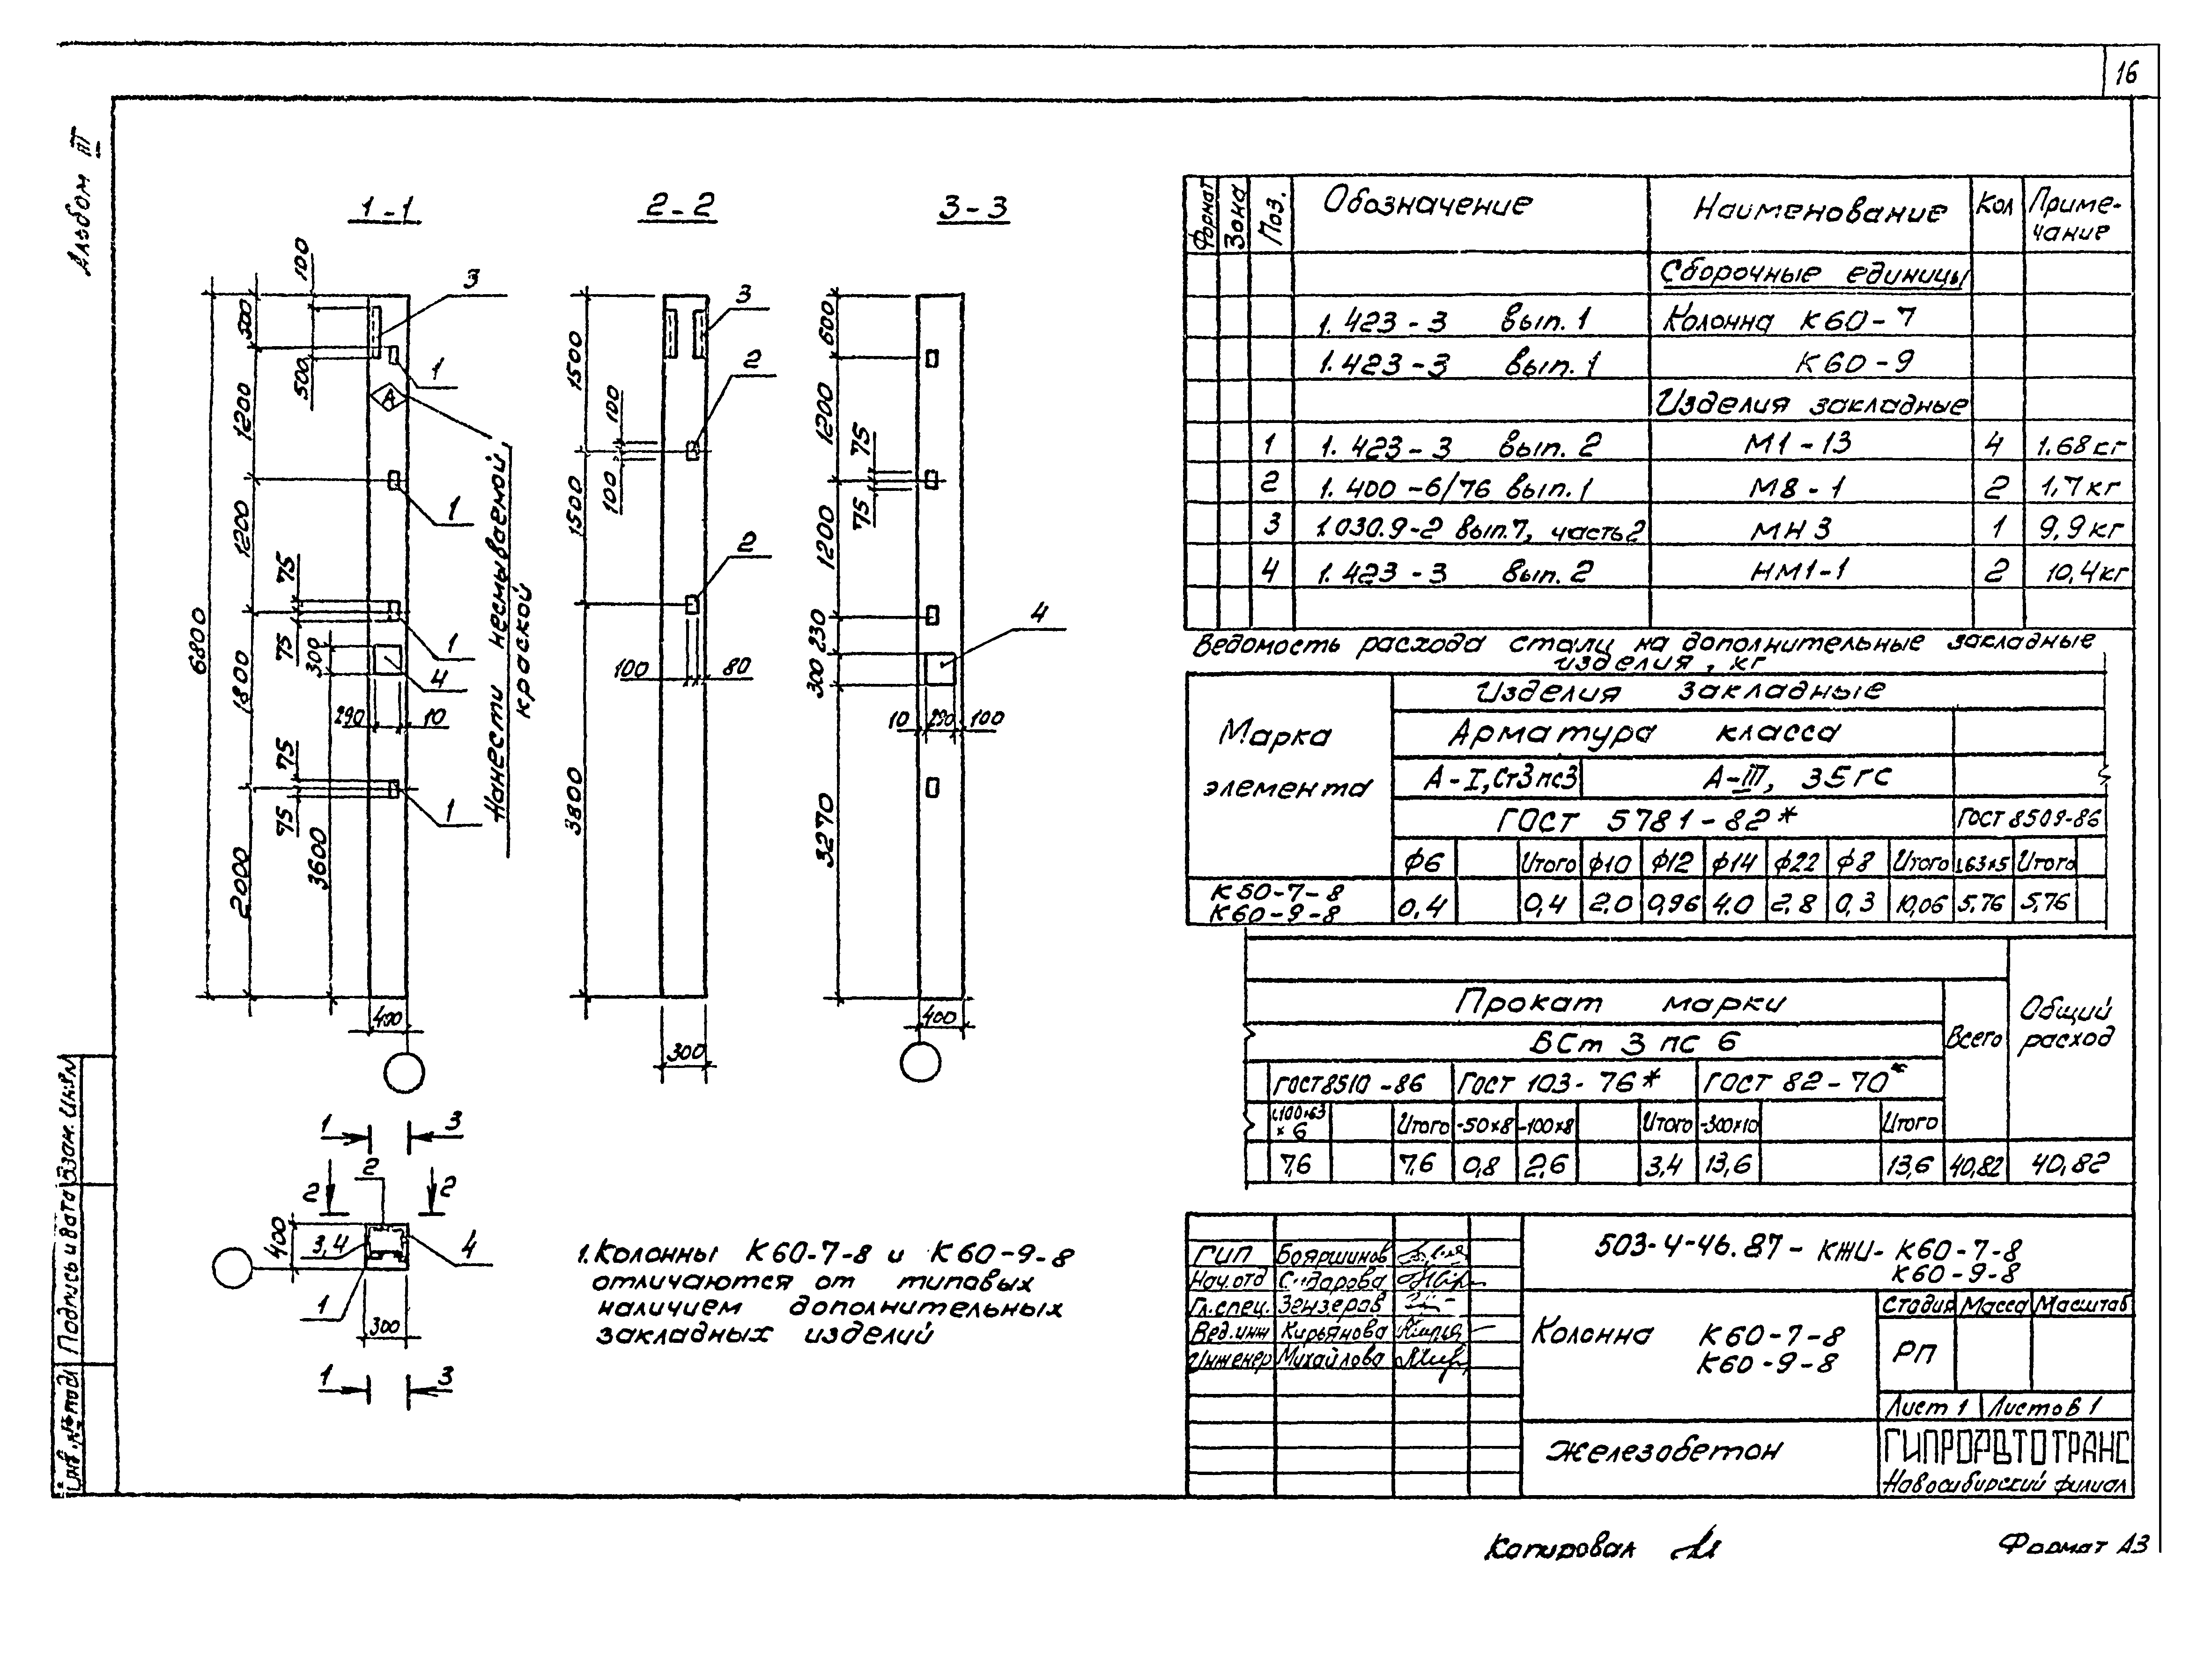 16
Альбом III
1-1
2-2
3-3
100
500
1200
1200
1800
2000
6800
500
75
75
300
75
75
3600
290
10
400
3
1
1
1
4
1
А
Нанести несмываемой
краской
1500
1500
3800
100
100
100
80
300
3
2
2
600
1200
1200
230
300
3270
75
75
10
290
100
400
4
1
3
2
2
2
400
3,4
4
1
300
1
3
1. Колонны К60-7-8 и К60-9-8
отличаются от типовых
наличием дополнительных
закладных изделий
Формат Зона Поз. Обозначение Наименование Кол Приме-
чание
Сборочные единицы
1.423-3 вып.1 Колонна К60-7
1.423-3 вып.1 К60-9
Изделия закладные
1 1.423-3 вып.2 М1-13 4 1.68кг
2 1.400-6/76 вып.1 М8-1 2 1,7кг
3 1.030.9-2 вып.7, часть2 МН3 1 9,9кг
4 1.423-3 вып.2 НМ1-1 2 10,4кг
Ведомость расхода стали на дополнительные закладные
изделия, кг
Марка
элемента
Изделия закладные
Арматура класса
А-I, Ст3пс3 А-III, 35ГС
ГОСТ 5781-82* ГОСТ 8509-86
ф6 Итого ф10 ф12 ф14 ф22 ф8 Итого L63х5 Итого
К50-7-8
К60-9-8
0,4 0,4 2,0 0,96 4.0 2,8 0,3 10,06 5,76 5,76
Прокат марки
БСт 3 пс 6
Всего
Общий
расход
ГОСТ8510-86 ГОСТ 103-76* ГОСТ 82-70*
L100х63
х 6
Итого -50х8 -100х8 Итого -300х10 Итого
7,6 7,6 0,8 2,6 3,4 13,6 13,6 40,82 40,82
ГИП Бояршинов
Нач.отд Сидарова
Гл.спец. Зензеров
Вед.инж Кирьянова
Инженер Михайлова
503-4-46.87-КЖИ-К60-7-8
К60-9-8
Колонна К60-7-8
К60-9-8
Стадия Масса Масштаб
РП
Лист 1 Листов 1
Железобетон
ГИПРОАВТОТРАНС
Новосибирский филиал
Взам. инв№
Подпись и дата
Инв.№ подл
Копировал
Формат А3